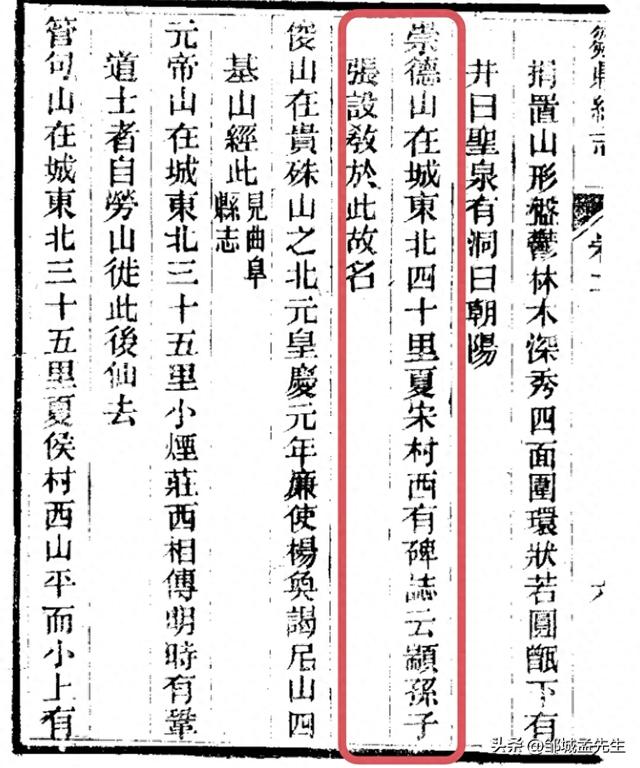 鄒縣續志
卷二
捐置山形盤鬱林木深秀四面圍環狀若圓甑下有
井曰聖泉有洞曰朝陽
崇德山在城東北四十里夏宋村西有碑誌云顓孫子
張設教於此故名
俊山在貴硃山之北元皇慶元年廉使楊奐謁尼山四
基山經此見曲阜縣志
元帝山在城東北三十五里小煙莊西相傳明時有鞏
道士者自勞山徙此後仙去
管句山在城東北三十五里夏侯村西山平而小上有
头条 @邹城孟先生